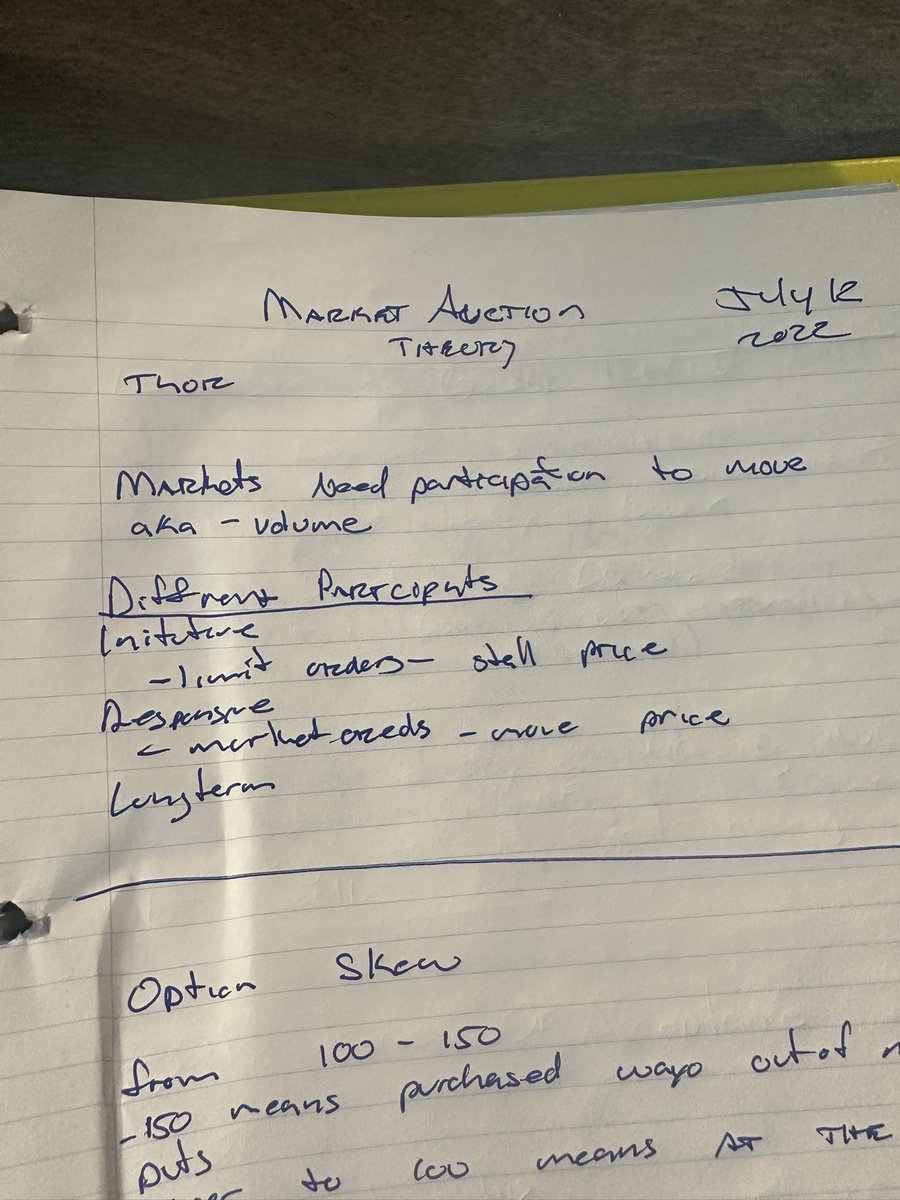 MARKET AUCTION THEORY
July 12 2022
Thor
Markets Need participation to move
aka - volume
Different Participants
Initative
- limit orders - stall price
Responsive
- market oreds - move price
Longterm
Option Skew
from 100 - 150
-150 means purchased ways out of
puts
to 100 means AT THE